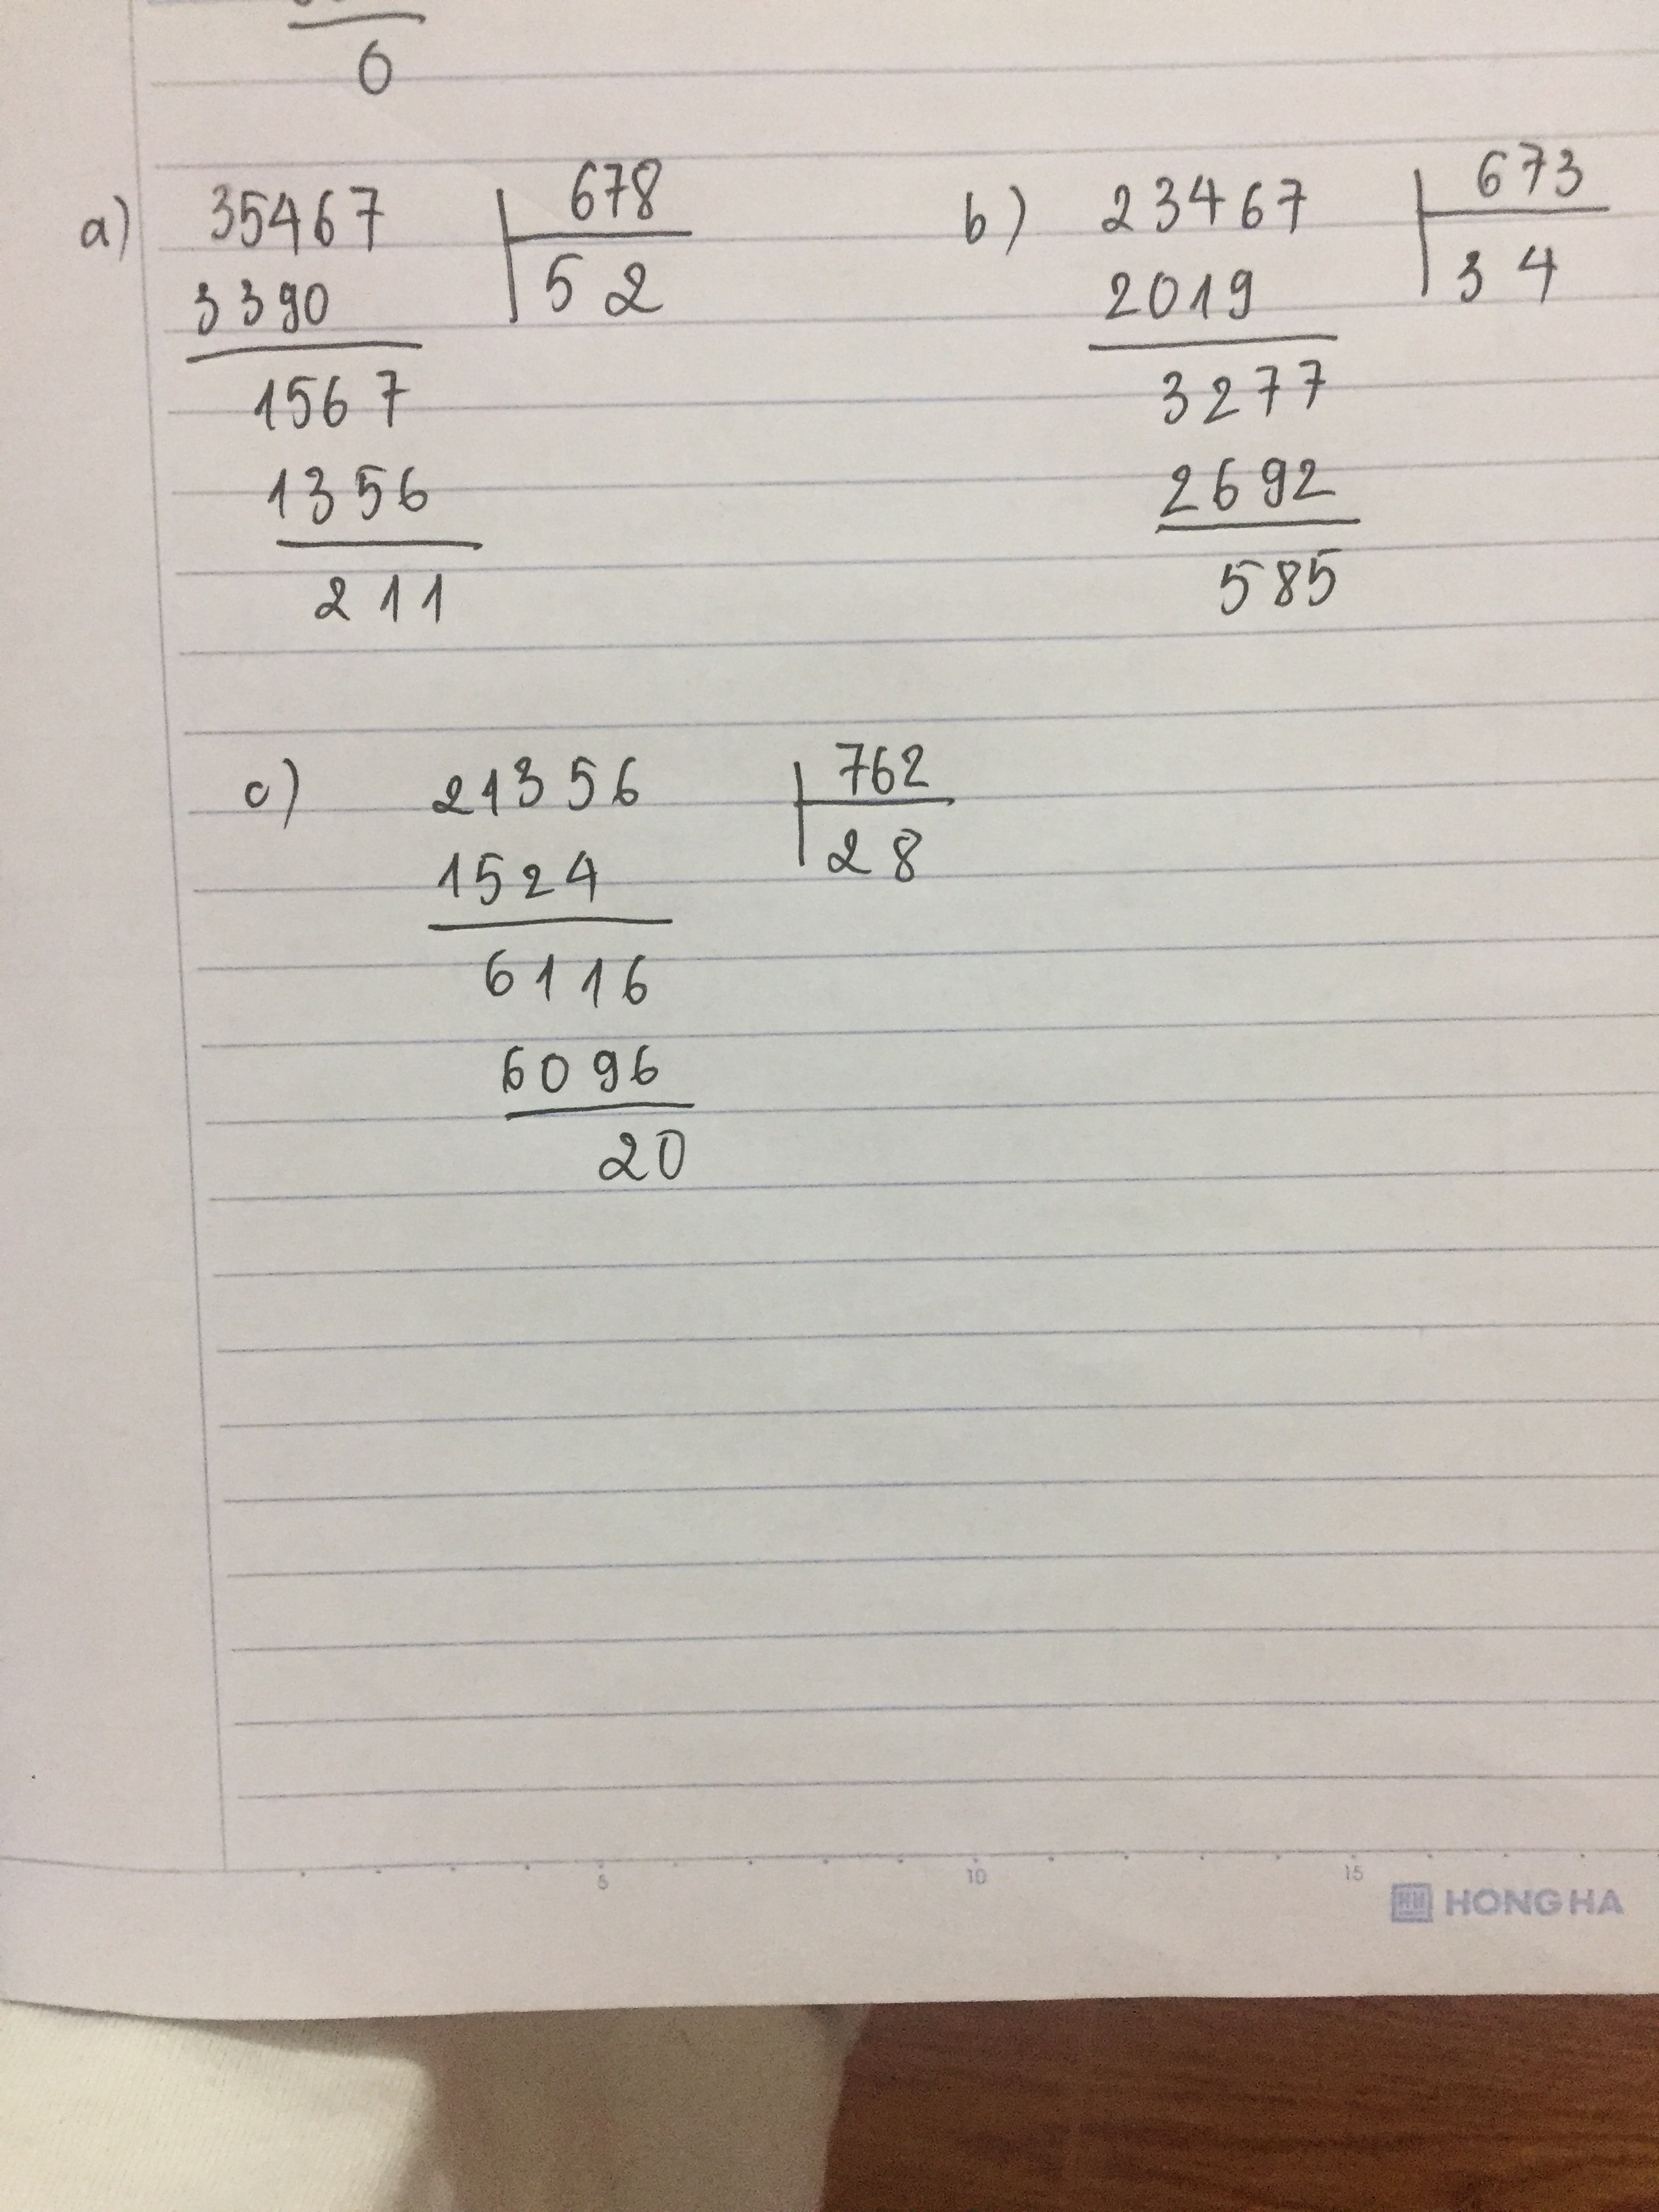 0
a) 35467 678
3390 52
1567
1356
211
b) 23467 673
2019 34
3277
2692
585
c) 21356 762
1524 28
6116
6096
20
5 10 15
HONG HA